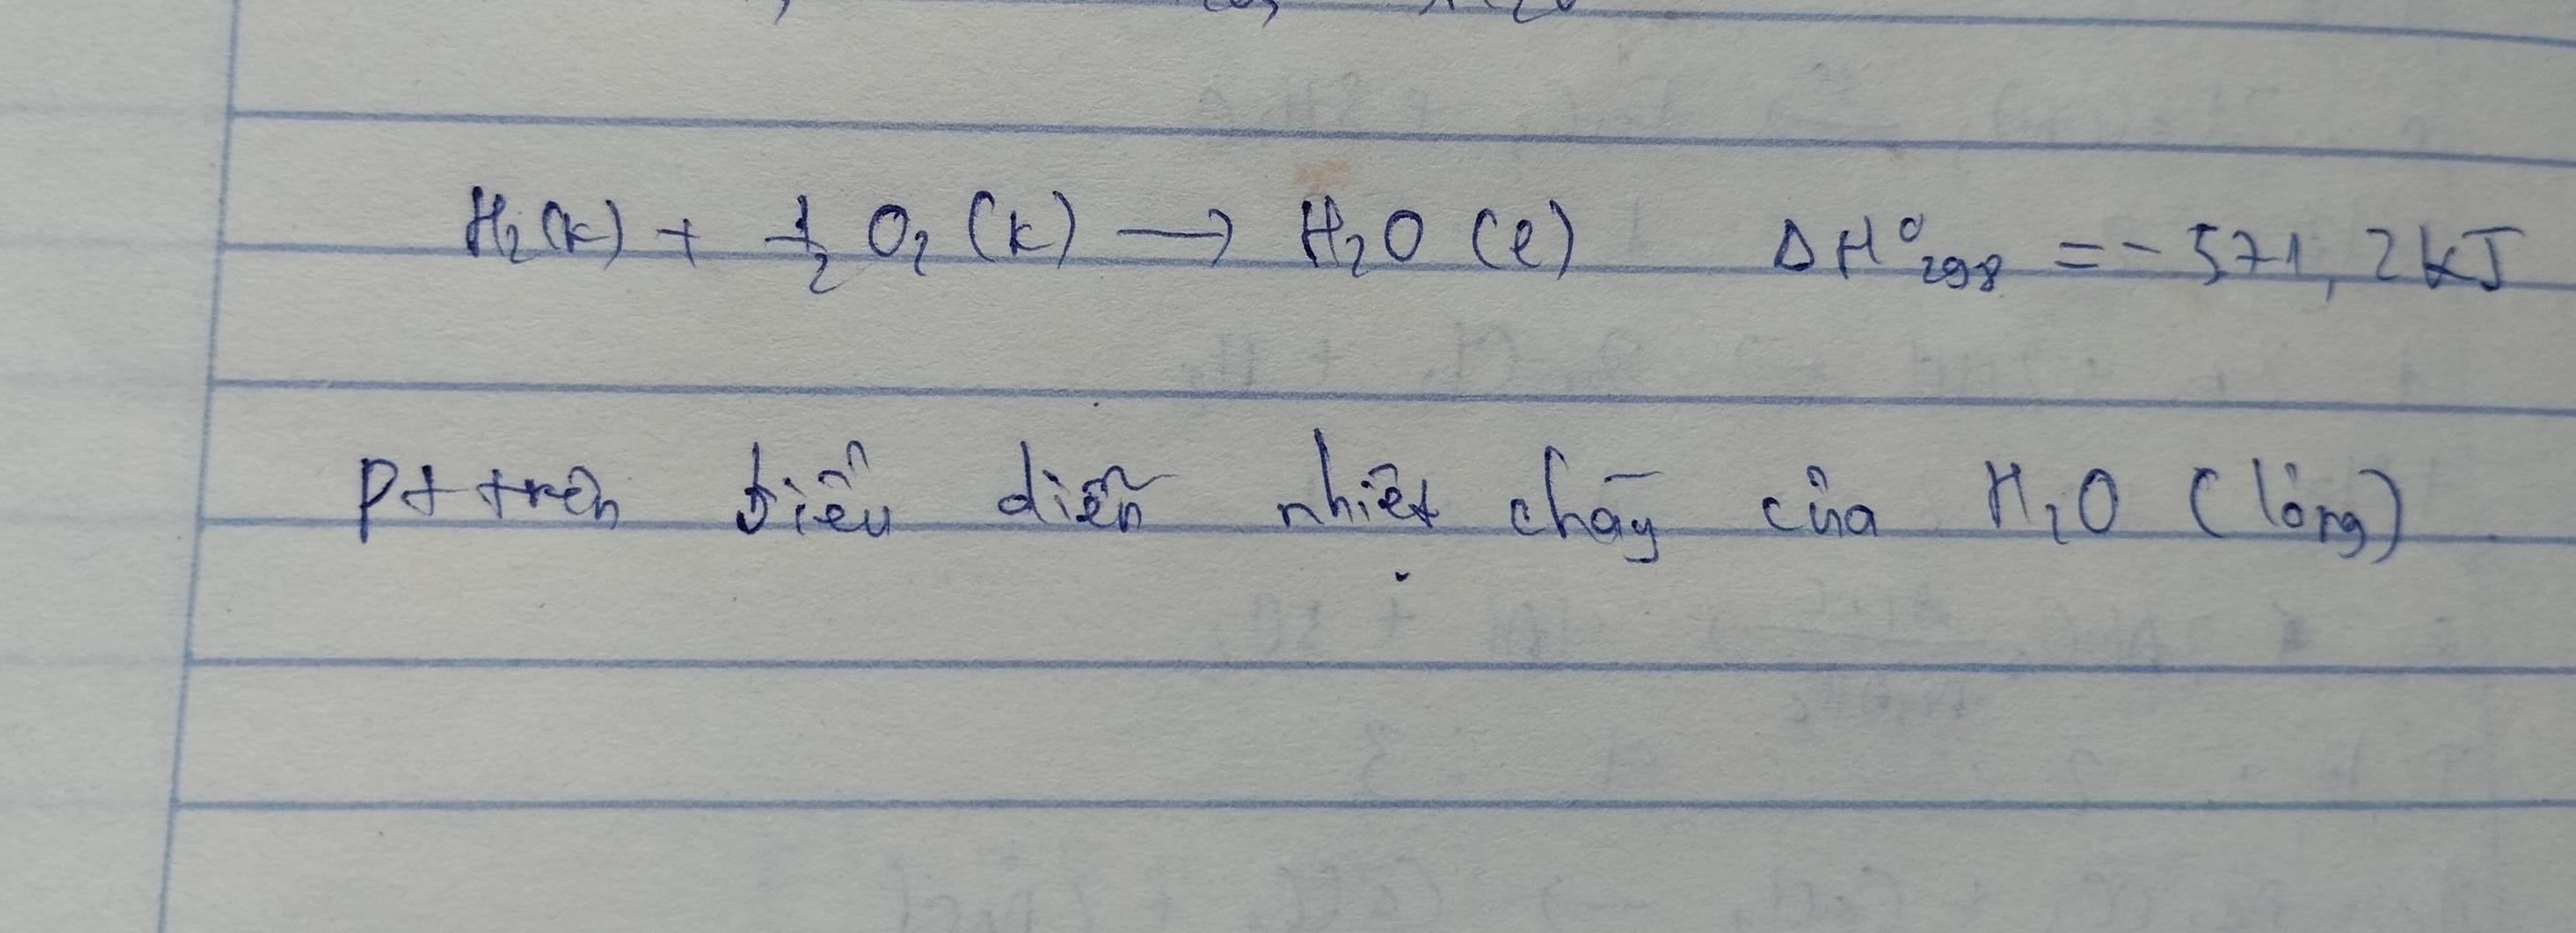 H₂(k) + 1/2 O₂ (k) → H₂O (l) ΔH°₂₉₈ = - 571,2 kJ
Pt trên biểu diễn nhiệt cháy của H₂O (lỏng)